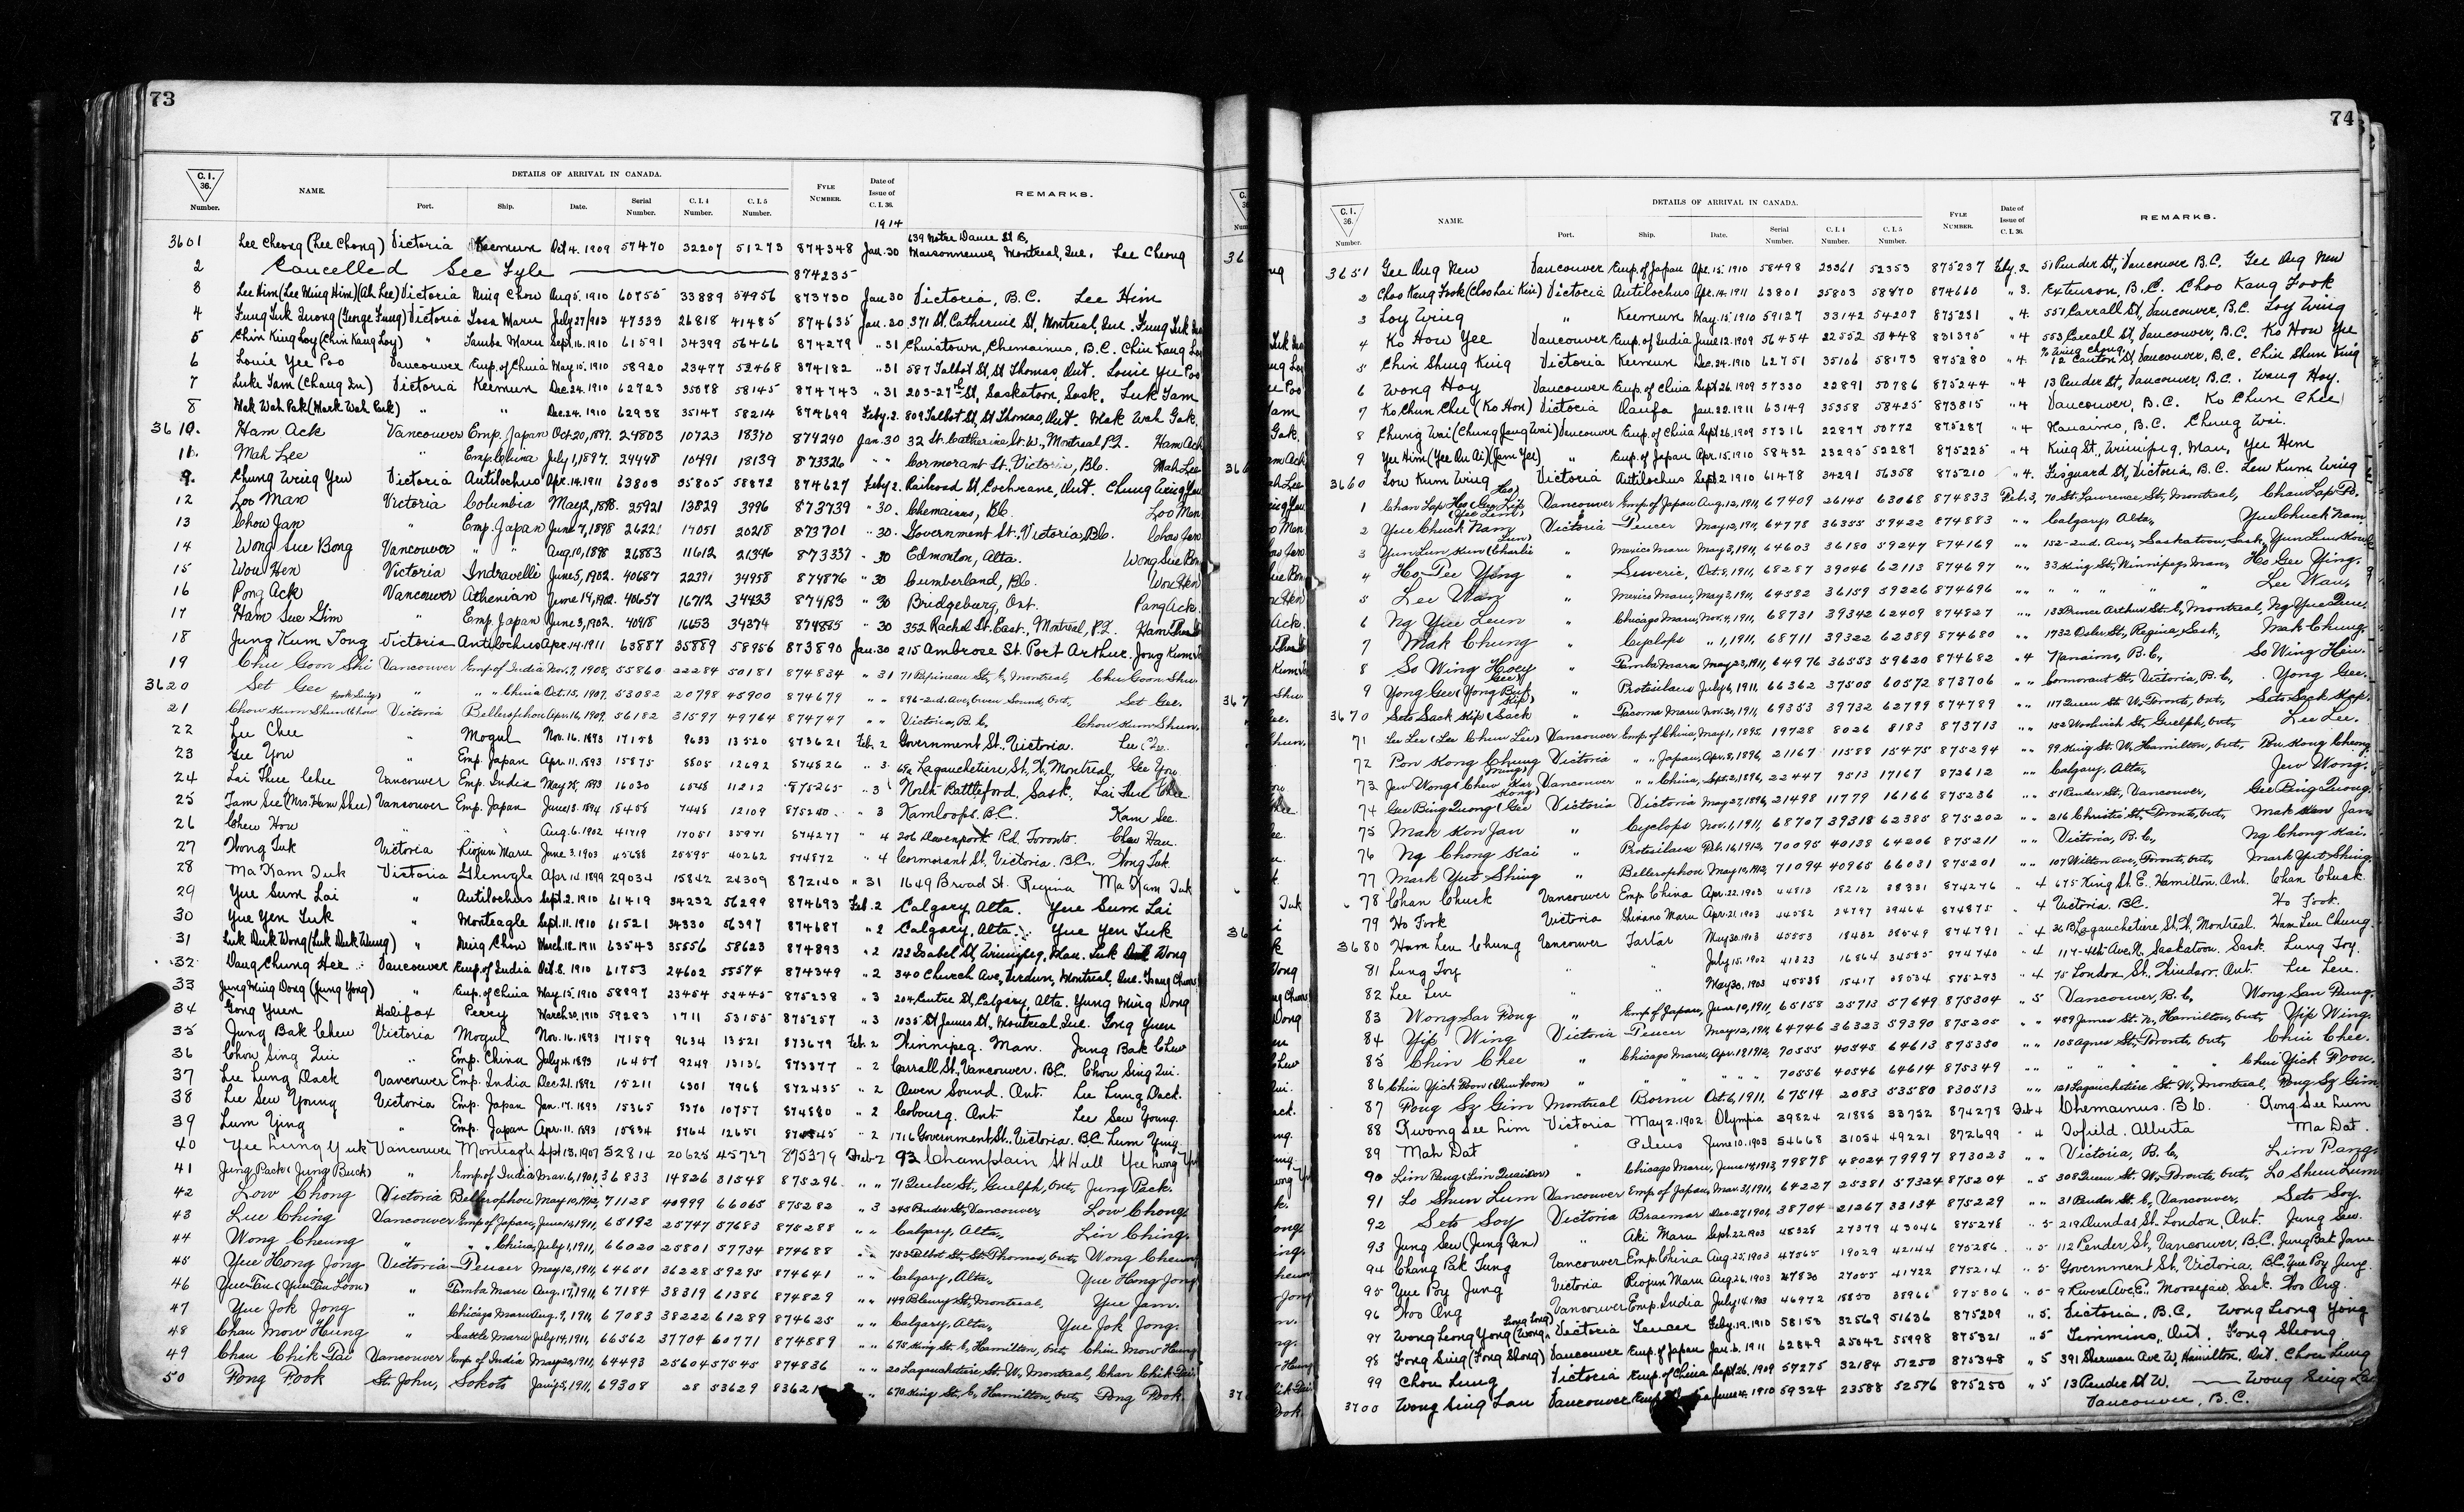 73
C. I. 36. Number. NAME. DETAILS OF ARRIVAL IN CANADA. Port. Ship. Date. Serial Number. C. I. 4 Number. C. I. 5 Number. FYLE NUMBER. Date of Issue of C. I. 36. REMARKS.
1914
639 Notre Dame St E,
3601 Lee Cheong (Lee Chong) Victoria Keemun Oct 4. 1909 57470 32207 51273 874348 Jan. 30 Maisonneuve, Montreal, Que. Lee Cheong
2 Cancelled See Fyle 874235
3 Lee Him (Lee Ming Him) (Ah Lee) Victoria Ning Chow Aug 5. 1910 60755 33889 54956 873730 Jan 30 Victoria, B.C. Lee Him
4 Fung Tuk Quong (George Fung) Victoria Tosa Maru July 27/903 47333 26818 41485 874635 Jan. 20 371 St. Catherine St, Montreal, Que. Fung Tuk
5 Chin King Loy (Chin Kang Loy) " Tamba Maru Sept. 16. 1910 61591 34399 56466 874279 " 31 Chinatown, Chemainus, B.C. Chin Kang Loy
6 Louie Yee Poo Vancouver Emp. of China May 15. 1910 58920 23477 52468 874182 " 31 587 Talbot St, St Thomas, Ont. Louie Yee Poo
7 Luk Tam (Chang Lu) Victoria Keemun Dec. 24. 1910 62723 35078 58145 874743 " 31 203-27th St, Saskatoon, Sask. Luk Tam
8 Mak Wah Pak (Mark Wah Park) " " Dec. 24. 1910 62938 35147 58214 874699 Feby. 2. 809 Talbot St, St Thomas, Ont. Mak Wah Gak.
3610. Ham Ack Vancouver Emp. Japan Oct 20, 1897. 24803 10723 18370 874290 Jan. 30 32 St. Catherine St. W., Montreal P.Q. Ham Ack
11. Mah Lee " Emp. China July 1, 1897. 24448 10491 18139 873326 " " Cormorant St. Victoria, B.C. Mah Lee
9. Chung Wing Yew Victoria Antilochus Apr. 14. 1911 63803 35805 58872 874627 Feby 2. Railroad St, Cochrane, Ont. Chung Wing Yew
12 Loo Man Victoria Columbia May 2, 1898. 25921 13829 3996 873739 " 30. Chemainus, B.C. Loo Man
13 Chow Jan " Emp. Japan June 7, 1898 26221 14051 20218 873701 " 30. Government St. Victoria, B.C. Chow Jan
14 Wong Sue Bong Vancouver " " Aug. 10, 1898 26883 11612 21346 873337 " 30 Edmonton, Alta. Wong Sue Bon
15 Wou Hen Victoria Indravelli June 5, 1902. 40687 22391 34958 874876 " 30 Cumberland, B.C. Wou Hen
16 Pong Ack Vancouver Athenian June 14, 1902. 40657 16712 34433 874183 " 30 Bridgeburg, Ont. Pang Ack.
17 Ham Sue Gim " Emp. Japan June 3, 1902. 40418 16653 34374 874885 " 30 352 Rachel St. East., Montreal, P.Q. Ham
18 Jung Kum Tong Victoria Antilochus Apr. 14. 1911 63887 35889 58956 873890 Jan. 30 215 Ambrose St. Port Arthur. Jong Kum
19 Chu Goon Shi Vancouver Emp of India Nov. 7, 1908, 55860 22284 50181 874834 " 31 71 Papineau St, E, Montreal, Chu Goon Shu.
3620 Set Gee " " " China Oct. 15, 1907. 53082 20798 45900 874679 " " 896-2nd. Ave, Owen Sound, Ont, Set Gee.
21 Chow Kum Shun (Chow Kook Sing) Victoria Bellerophon Apr. 16, 1909. 56182 31597 49764 874747 " " Victoria, B.C. Chow Kum Shun.
22 Lee Chee " Mogul Nov. 16. 1893 17158 9633 13520 873621 Feb. 2 Government St. Victoria. Lee Chee.
23 Gee You " Emp. Japan Apr. 11. 1893 15875 8805 12692 874826 " 3. 65a Lagauchetiere St, W, Montreal Gee You
24 Lai Thue Chee Vancouver Emp. India May 28, 1893 16030 6548 11212 875265 " 3 North Battleford, Sask. Lai Thue Chee
25 Tam See (Mrs. Ham Shee) Vancouver Emp. Japan June 13. 1894 18458 7448 12109 875240 " 3 Kamloops. B.C. Kam See.
26 Chew How " " Aug. 6. 1902 41719 17051 35971 874277 " 4 206 Davenport Rd. Toronto. Chew Hau.
27 Wong Tuk Victoria Riojun Maru June 3. 1903 45688 25595 40262 874872 " 4 Cormorant St. Victoria. B.C. Wong Tuk.
28 Ma Kam Tuk Victoria Glenogle Apr 14. 1899 29034 15842 24309 872140 " 31 1649 Broad St. Regina Ma Kam Tuk
29 Yue Sum Lai " Antilochus Sept. 2. 1910 61419 34232 56299 874693 Feb. 2 Calgary, Alta. Yue Sum Lai
30 Yue Yen Tuk " Monteagle Sept. 11. 1910 61521 34330 56397 874687 " 2 Calgary, Alta. Yue Yen Tuk
31 Luk Duk Wong (Luk Duk Wung) " Ning Chow March 18. 1911 63543 35556 58623 874893 " 2 122 Isabel St, Winnipeg, Man. Luk Duk Wong
32 Dang Chung Hee Vancouver Emp. of India Oct. 8. 1910 61753 24602 55574 874349 " 2 340 Church Ave, Verdun, Montreal, Que.
33 Jung Ming Dong (Jung Yong) " Emp. of China May 15. 1910 58897 23454 52445 875238 " 3 204 Centre St, Calgary, Alta. Yung Ming Dong
34 Gong Yuen Halifax Perry March 30, 1910 59283 1711 53155 875257 " 3 1035 St James St, Montreal, Que. Gong Yuen
35 Jung Bak Chew Victoria Mogul Nov. 16. 1893 17159 9634 13521 873679 Feb. 2 Winnipeg. Man. Jung Bak Chew
36 Chow Sing Qui " Emp. China July 4. 1893 16457 9249 13136 873377 " 2 Carrall St, Vancouver. B.C. Chow Sing Qui.
37 Lee Lung Dack Vancouver Emp. India Dec. 21. 1892 15211 6301 7968 872435 " 2 Owen Sound. Ont. Lee Lung Dack.
38 Lee Sew Young Victoria Emp. Japan Jan. 17. 1893 15365 8370 10757 874880 " 2 Cobourg. Ont. Lee Sew Young.
39 Lum Ying " Emp. Japan Apr. 11. 1893 15834 8764 12651 " 2 1716 Government St. Victoria. B.C. Lum Ying.
40 Yee Lung Yuk Vancouver Monteagle Sept 13, 1907 52814 20625 45727 875379 Feb-2 93 Champlain St Hull Yee Lung
41 Jung Pack (Jung Buck) " Emp. of India Mar. 6, 1901, 36833 14826 31548 875296. " " 71 Quebec St., Guelph, Ont, Jung Pack.
42 Low Chong Victoria Bellerophon May 10, 1912, 71128 40999 66065 875282 " 3 245 Pender St, Vancouver, Low Chong
43 Lue Ching Vancouver Emp of Japan, June 14, 1911, 65192 25747 57683 875288 " " Calgary, Alta, Lin Ching.
44 Wong Cheung " " " China, July 1, 1911, 66020 25801 57734 874688 " " 753 Talbot St, St. Thomas, Ont, Wong Cheung
45 Yue Hong Jong Victoria Teucer May 12, 1911, 64651 36228 59295 874641 " " Calgary, Alta, Yue Hong Jong
46 Yue Tau (Yue Tau Loon) " Tamba Maru Aug. 17, 1911, 67184 38319 61386 874829 " " 149 Bleury St, Montreal, Yue Jam.
47 Yue Jok Jong " Chicago Maru Aug. 9, 1911, 67083 38222 61289 874625 " " Calgary, Alta, Yue Jok Jong.
48 Chan Mow Hung " Seattle Maru July 14, 1911, 66562 37704 60771 874889 " " 675 King St. E, Hamilton, Ont, Chin Mow Hung
49 Chan Chik Tai Vancouver Emp. of India May 20, 1911, 64493 25604 57545 874836 " " 20 Lagauchetiere St. W, Montreal, Chan Chik Tai
50 Pong Pook St. John, Sokoto Jany 5, 1911, 69308 28 53629 83621 " 670 King St, E, Hamilton, Ont, Pong Pook.
74
C. I. 36. Number. NAME. DETAILS OF ARRIVAL IN CANADA. Port. Ship. Date. Serial Number. C. I. 4 Number. C. I. 5 Number. FYLE NUMBER. Date of Issue of C. I. 36. REMARKS.
3651 Gee Aug New Vancouver Emp. of Japan Apr. 15. 1910 58498 23361 52353 875237 Feby. 2 51 Pender St, Vancouver B.C. Gee Aug New
2 Choo Kang Fook (Choo Lai Kin) Victoria Antilochus Apr. 14. 1911 63801 35803 58870 874660 " 3. Extension, B.C. Choo Kang Fook
3 Loy Wing " Keemun May. 15. 1910 59127 33142 54209 875231 " 4. 557 Carrall St, Vancouver, B.C. Loy Wing
4 Ko How Yee Vancouver Emp. of India June 12. 1909 56454 22552 50448 831395 " 4 553 Carrall St, Vancouver, B.C. Ko How Yee
5 Chin Shung King Victoria Keemun Dec. 24. 1910 62751 35106 58173 875280 " 4. % Wing Chong, 12 Canton St Vancouver, B.C. Chin Shun King
6 Wong Hoy Vancouver Emp. of China Sept 26. 1909 57330 22891 50786 875244 " 4 13 Pender St, Vancouver, B.C. Wong Hoy.
7 Ko Chun Chee (Ko Hon) Victoria Oanfa Jan. 22. 1911 63149 35358 58425 873815 " 4 Vancouver, B.C. Ko Chun Chee
8 Chung Wai (Chung Jang Wai) Vancouver Emp. of China Sept 26. 1909 57316 22877 50772 875287 " 4 Nanaimo, B.C. Chung Wai.
9 Yee Him (Yee Du Ai) (Jam Yee) " Emp. of Japan Apr. 15. 1910 58432 23295 52287 875225 " 4 King St, Winnipeg, Man, Yee Him
3660 Low Kum Wing Victoria Antilochus Sept 2. 1910 61478 34291 56358 875210 " 4. Fisguard St, Victoria, B.C. Lew Kum Wing
1 Chan Lap Vancouver Emp of Japan Aug. 12, 1911, 67409 26145 63068 874833 Feb. 3, 70 St. Lawrence St, Montreal, Chan Lap
2 Yue Chuck Nam Victoria Teucer May 12, 1911, 64778 36355 59422 874883 " " Calgary, Alta, Yue Chuck Nam.
3 Yun Lun Kun (Charlie Lun) " Mexico Maru May 3, 1911, 64603 36180 59247 874169 " " 152-2nd. Ave, Saskatoon, Sask, Yun Lun
4 Ho Tee Ying " Suveric, Oct. 8, 1911, 68287 39046 62113 874697 " " 33 King St, Winnipeg, Man, Ho Gee Ying.
5 Lee Wan " Mexico Maru, May 3, 1911, 64582 36159 59226 874696 " " " " " Lee Wau,
6 Ng Yue Leun " Chicago Maru, Nov. 4, 1911, 68731 39342 62409 874827 " " 133 Prince Arthur St. E, Montreal, Ng Yue
7 Mak Chung " Cyclops " 1, 1911, 68711 39322 62389 874680 " " 1732 Osler St, Regina, Sask, Mak Chung.
8 So Wing Hoey " Tamba Maru May 23, 1911, 64976 36553 59620 874682 " 4 Nanaimo, B.C, So Wing Hew.
9 Yong Gee (Yong Buk Gee) " Protesilaus July 6, 1911, 66362 37505 60572 873706 " " Cormorant St, Victoria, B.C, Yong Gee.
3670 Seto Sack Kip (Sack Kip) " Tacoma Maru Nov. 30, 1911, 69353 39732 62799 874789 " " 117 Queen St. W. Toronto, Ont, Seto Sack Kop.
71 Lee Lee (Lee Chun Lee) Vancouver Emp. of China, May 1, 1895, 19728 8026 8183 873713 " " 152 Woolwich St, Guelph, Ont, Lee Lee.
72 Pon Kong Chung Victoria " " Japan, Apr. 8, 1896, 21167 11588 15475 875294 " " 99 King St. W, Hamilton, Ont, Pon Kong Cheong
73 Jew Wong (Chew Kar Ming) Vancouver " " China, Sept. 2, 1896, 22447 9513 17167 872612 " " Calgary, Alta, Jew Wong.
74 Gee Bing Quong (Gee Kong) Victoria Victoria May 27, 1896, 21498 11779 16166 875236 " " 51 Pender St, Vancouver, Gee Bing Quong.
75 Mak Kon Jan " Cyclops Nov. 1, 1911, 68707 39318 62385 875202 " " 216 Christie St, Toronto, Ont, Mak Kon Jan
76 Ng Chong Kai " Protesilaus Feb. 16, 1912, 70095 40138 64206 875211 " " Victoria, B.C, Ng Chong Kai.
77 Mark Yut Shing " Bellerophon May 10, 1912, 71094 40965 66031 875201 " " 107 Wilton Ave, Toronto, Ont, Mark Yut Shing
78 Chan Chuck Vancouver Emp. China Apr. 22. 1903 44813 18212 38331 874276 " 4 675 King St. E. Hamilton. Ont. Chan Chuck.
79 Ho Fook Victoria Shinano Maru Apr. 21. 1903 44582 24797 39464 874875 " 4 Victoria. B.C. Ho Fook.
3680 Ham Leu Chung Vancouver Tartar May 30. 1903 45553 18432 38549 874791 " 4 36 B Lagauchetiere St, W, Montreal. Ham Leu Chung.
81 Lung Toy " " July 15. 1902 41323 16864 34585 874740 " 4 117-4th Ave. N, Saskatoon. Sask. Lung Toy.
82 Lee Leu " " May 30. 1903 45538 15417 38534 875293 " 4 75 London St, Windsor. Ont. Lee Leu.
83 Wong Sar Pong " Emp of Japan, June 10, 1911, 65158 25713 57649 875304 " 5 Vancouver, B.C, Wong San Pung.
84 Yip Wing Victoria Teucer May 12, 1911, 64746 36323 59390 875205 " " 489 James St. N, Hamilton, Ont, Yip Wing.
85 Chin Chee " Chicago Maru, Apr. 18, 1912, 70555 40545 64613 875350 " " 105 Agnes St, Toronto, Ont, Chin Chee.
86 Chin Yick Poon (Chin Foon) " " " 70556 40546 64614 875349 " " " " " Chin Yick Poon.
87 Pong Sz Gim Montreal Bornu Oct. 6, 1911, 67514 2083 53580 830513 " " 121 Lagauchetiere St. W, Montreal, Pong Sz Gim
88 Kwong See Lim Victoria May 2. 1902 Olympia 39824 21885 33752 874278 Feb 4 Chemainus. B.C. Kong See Lum
89 Mah Dat " Peleus June 10. 1903 54668 31054 49221 872699 " 4 Tofield. Alberta Ma Dat.
90 Lim Pang (Lim Quai Don) " Chicago Maru, June 14, 1913, 79878 48024 79997 873023 " " Victoria, B.C, Lim Pang.
91 Lo Shun Lum Vancouver Emp. of Japan, Mar. 31, 1911, 64227 25381 57324 875204 " 5 308 Queen St. W, Toronto, Ont, Lo Shun Lum
92 Seto Soy Victoria Braemar Dec. 27, 1901, 38704 21267 33134 875229 " " 31 Pender St. E, Vancouver, Seto Soy.
93 Jung Sew (Jung Gen) " Aki Maru Sept. 22. 1903 48328 27379 43046 875278 " 5 219 Dundas St. London, Ont. Jung Sew.
94 Chang Pak Tung Vancouver Emp. China Aug. 25. 1903 47565 19029 42144 875286. " 5 112 Pender St, Vancouver, B.C. Jung Bat Jane
95 Yue Poy Jung Victoria Riojun Maru Aug. 26. 1903 47830 27055 41722 875214 " 5 Government St, Victoria. B.C. Yue Poy Jung.
96 Woo Ang Vancouver Emp. India July 14. 1903 46972 18850 38966 875306 " 5 9 River Ave, E., Moosejaw, Sask. Woo Ang.
97 Wong Leong Yong (Wong Leong Long) Victoria Teucer Feby. 19. 1910 58153 32569 51636 875209 " 5. Victoria, B.C. Wong Leong Yong
98 Fong Sing (Fong Shong) Vancouver Emp. of Japan Jan. 6. 1911 62849 25042 55998 875321 " 5 Timmins, Ont. Fong Sheong
99 Chou Lung Victoria Emp. of China Sept 26. 1909 57275 32184 51250 875348 " 5 391 Sherman Ave W, Hamilton, Ont. Chou Lung
3700 Wong Sing Lau Vancouver June 14. 1910 59324 23588 52576 875250 " 5 13 Pender St W. Wong Sing Lau
Vancouver, B.C.